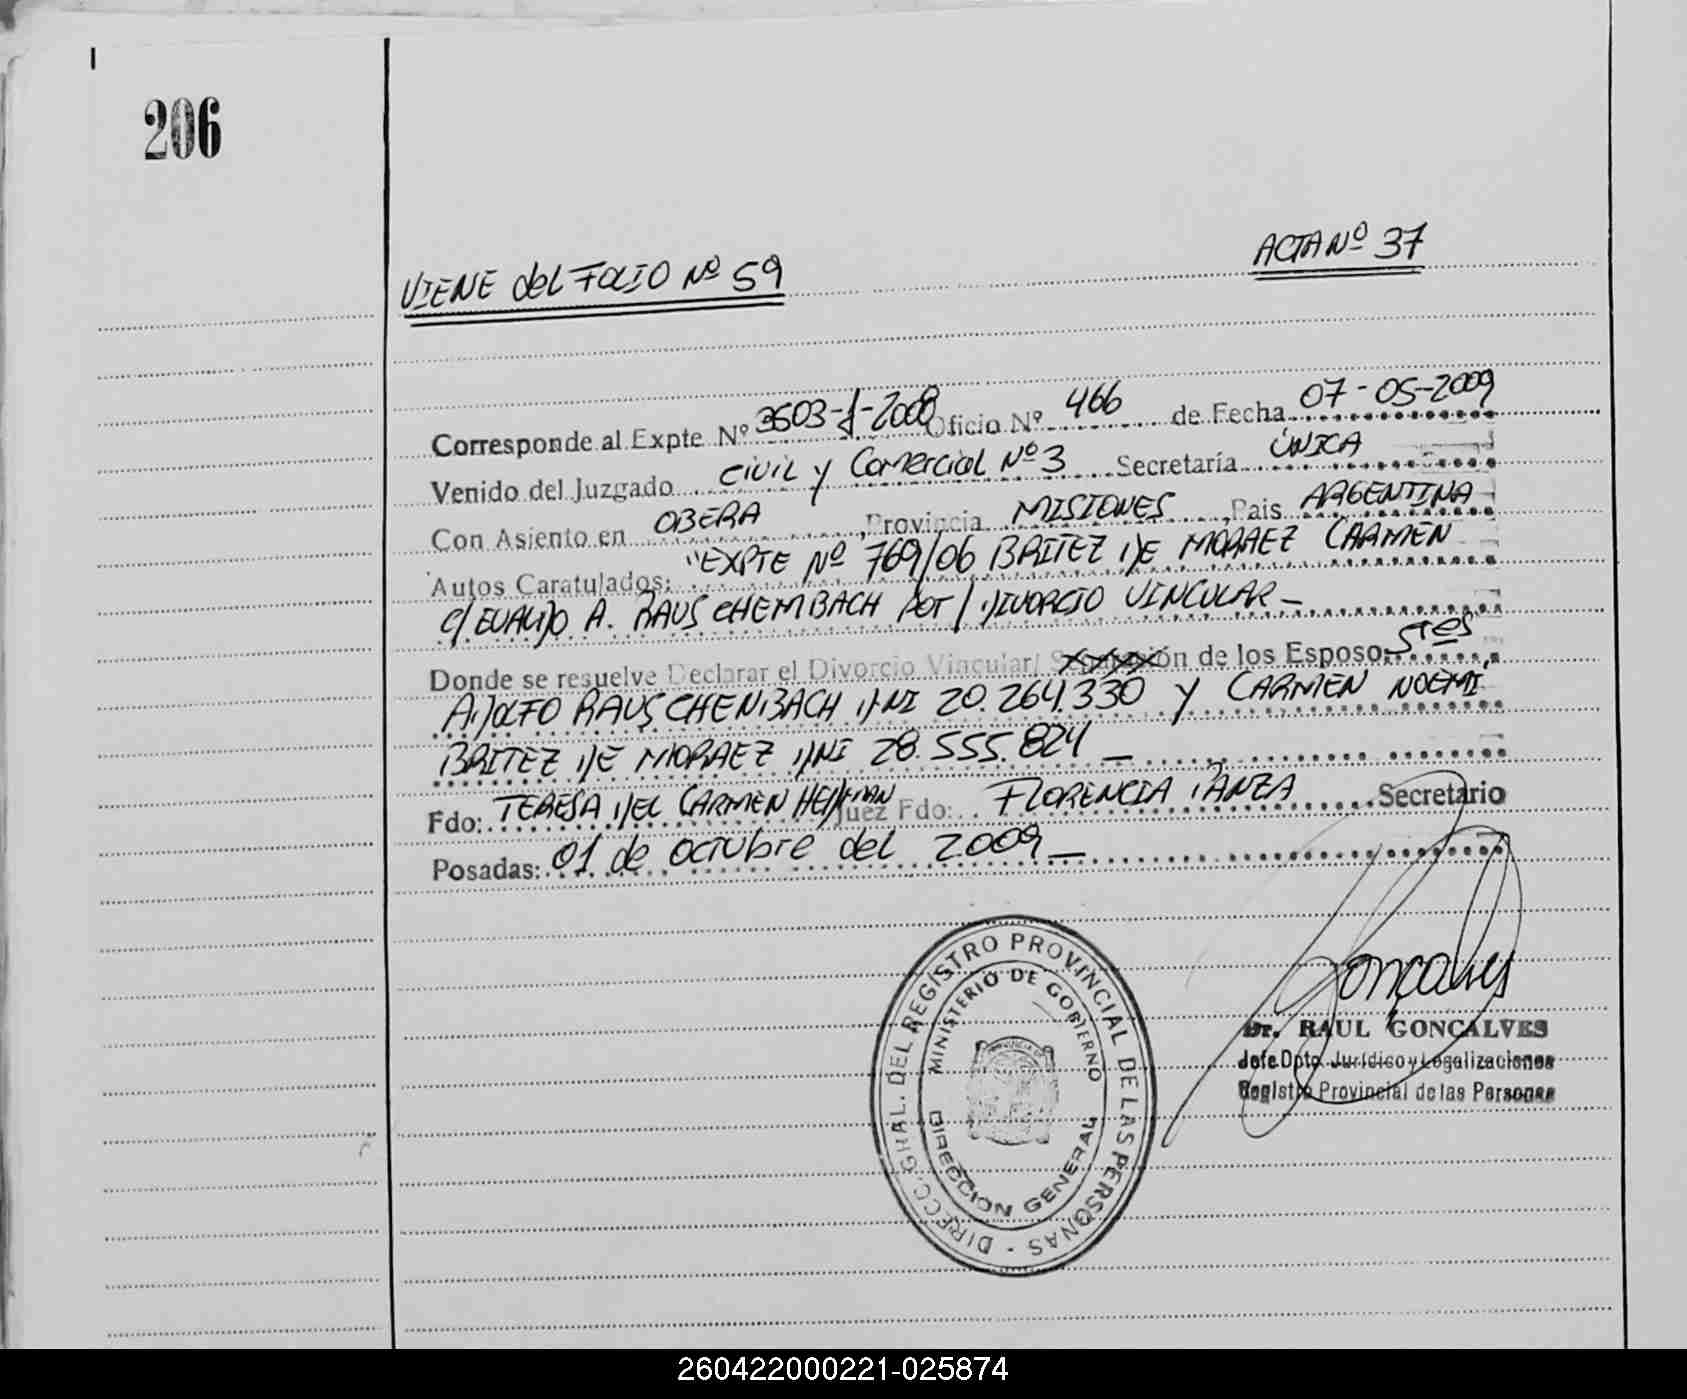 206
VIENE del FOLIO Nº 59
ACTA Nº 37
Corresponde al Expte Nº 3503-J-2008 Oficio Nº 466 de Fecha 07-05-2009
Venido del Juzgado civil y Comercial Nº 3 Secretaría ÚNICA
Con Asiento en OBERA, Provincia MISIONES, Pais ARGENTINA
Autos Caratulados: "EXPTE Nº 769/06 BRITEZ DE MORAEZ CARMEN
c/ EVALDO A. RAUSCHEMBACH POT/ DIVORCIO VINCULAR_
Donde se resuelve Declarar el Divorcio Vincular/ de los Esposos Stes
ADOLFO RAUSCHENBACH DNI 20.264.330 Y CARMEN NOEMI
BRITEZ DE MORAEZ DNI 28.555.824_
Fdo: TERESA DEL CARMEN Juez Fdo: FLORENCIA Secretario
Posadas: 01 de octubre del 2009_
DIRECC. GRAL. DEL REGISTRO PROVINCIAL DE LAS PERSONAS -
MINISTERIO DE GOBIERNO
DIRECCION GENERAL
Goncalves
Dr. RAUL GONCALVES
Jefe Dpto. Jurídico y Legalizaciones
Registro Provincial de las Personas
260422000221-025874